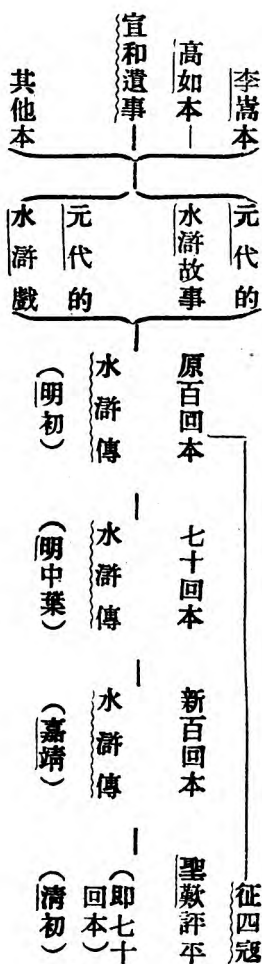 李嵩本
高如本
宣和遺事
其他本
元代的
水滸故事
元代的
水滸戲
原百回本
水滸傳
（明初）
七十回本
水滸傳
（明中葉）
新百回本
水滸傳
（嘉靖）
征四寇
聖歎評平
（即七十
回本）
（清初）